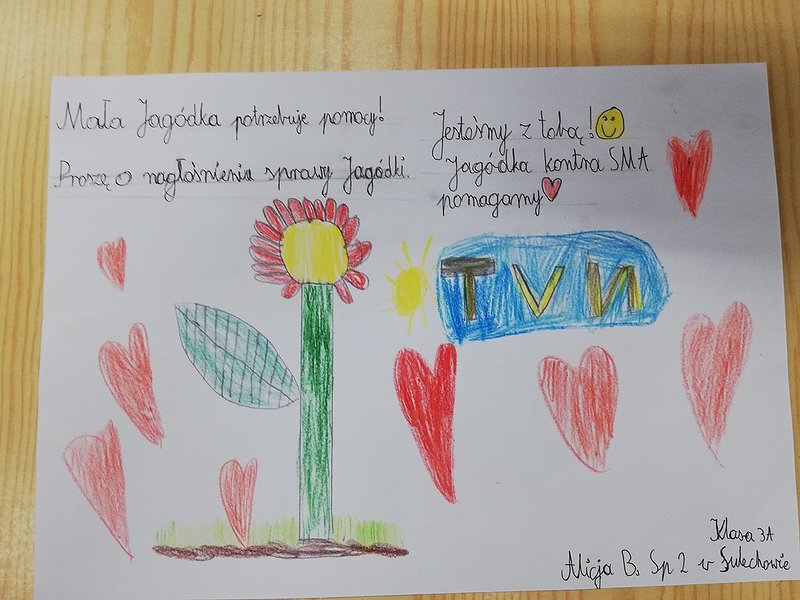 Mała Jagódka potrzebuje pomocy!
Proszę o nagłośnienia sprawy Jagódki.
Jesteśmy z tobą!
Jagódka kontra SMA
pomagamy
TVN
Klasa 3A
Alicja B. Sp 2 w Sulechowie